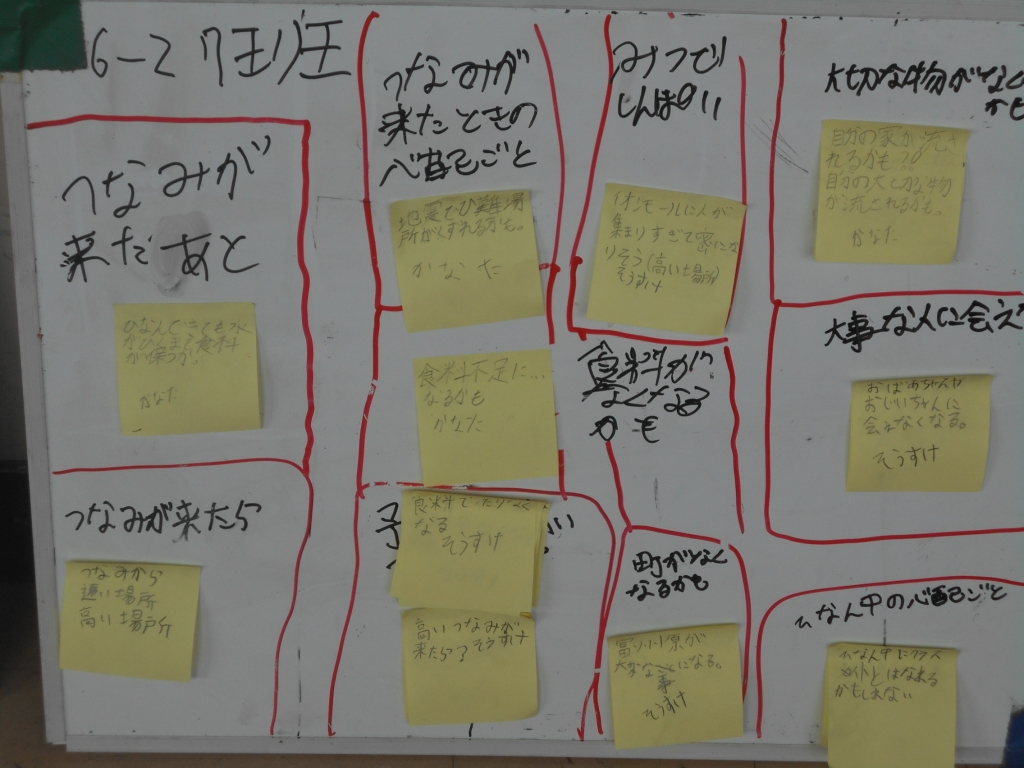 6-2 7王班
つなみが
来たあと
ひなんできても水
か保つか
かなた
つなみが来たら
つなみから
遠い場所
高い場所
つなみが
来たときの
心配ごと
地震でひ難場
所がくずれるかも。
かなた
食料不足に...
なるかも
かなた
なる
そうすけ
高いつなみが
来たら? そうすけ
みつで
しんぱい
イオンモールに人が
集まりすぎて密にな
りそう(高い場所)
そうすけ
食料が
なくなる
かも
町がなく
なるかも
大変な事になる。
そうすけ
大切な物がなく
かも
自分の家が流さ
れるかも??
自分の大切な物
が流されるかも。
かなた
大事な人に会え
おばあちゃんや
おじいちゃんに
会えなくなる。
そうすけ
ひなん中の心配ごと
ひなん中に
かもしれない